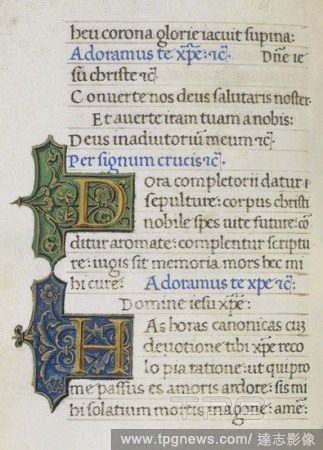 heu corona glorie iacuit supina:
Adoramus te xp̄e: ⁊c̄. Dn̄e ie
su christe ⁊c̄
Converte nos deus salutaris noster.
Et averte iram tuam a nobis:
Deus in adiutoriū meum ⁊c̄:
Per signum crucis ⁊c̄:
DOra completorii datur
sepulture: corpus christi
nobile spes vite future: cō
ditur aromate: complentur scriptu
re: iugis sit memoria mors hec mi
hi cure. Adoramus te xp̄e ⁊c̄:
Domine iesu xp̄e:
HAs horas canonicas cū
devotione tibi xp̄e reco
lo pia ratione: ut qui pro
me passus es amoris ardore: sis mi
hi solatium mortis in agone: amē:
TPG
www.tpgnews.com / 達志影像